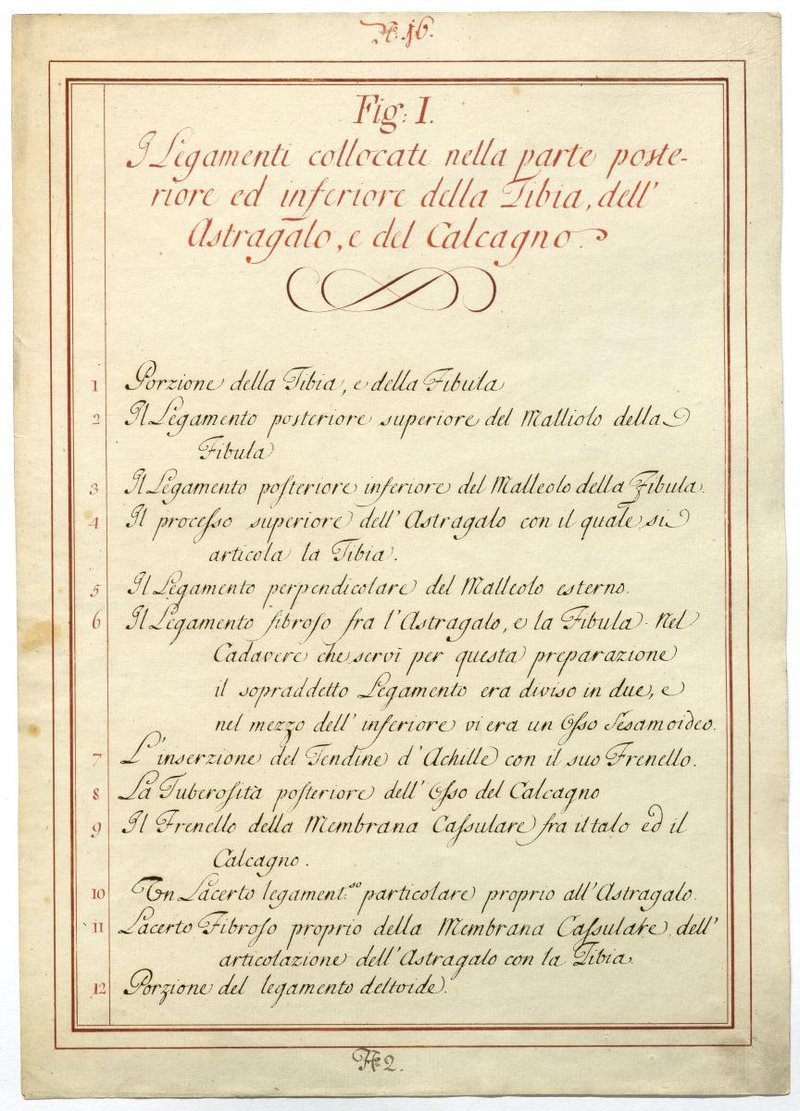 N.º 16.
Fig: I.
I Legamenti collocati nella parte poste-
riore ed inferiore della Tibia, dell'
Astragalo, e del Calcagno.
1 Porzione della Tibia, e della Fibula
2 Il Legamento posteriore superiore del Malliolo della
Fibula
3 Il Legamento posteriore inferiore del Malleolo della Fibula.
4 Il processo superiore dell' Astragalo con il quale si
articola la Tibia.
5 Il Legamento perpendicolare del Malleolo esterno.
6 Il Legamento fibroso fra l'Astragalo, e la Fibula. Nel
Cadavere che servì per questa preparazione
il sopraddetto Legamento era diviso in due, e
nel mezzo dell' inferiore vi era un Osso Sesamoideo.
7 L'inserzione del Tendine d'Achille con il suo Frenello.
8 La Tuberosità posteriore dell' Osso del Calcagno
9 Il Frenello della Membrana Cassulare fra il talo ed il
Calcagno.
10 Un Lacerto legament.so particolare proprio all'Astragalo.
11 Lacerto Fibroso proprio della Membrana Cassulare dell'
articolazione dell'Astragalo con la Tibia.
12 Porzione del legamento deltoide.
2.